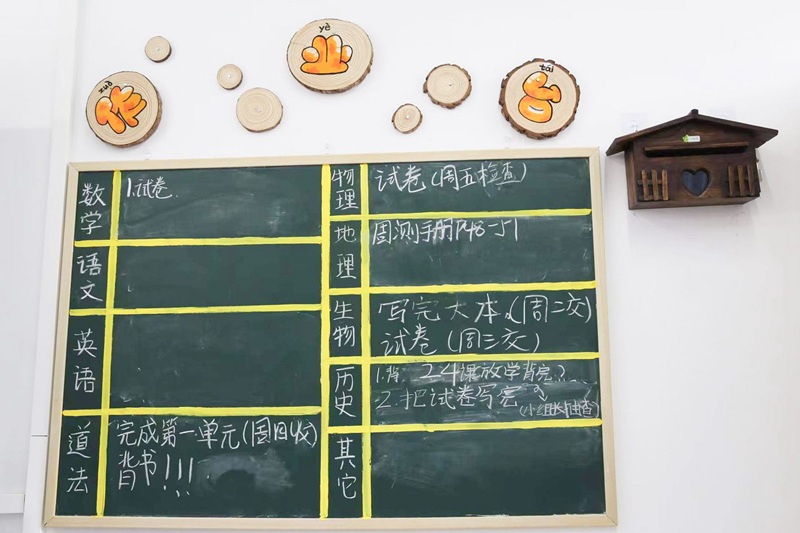 zuò
作
yè
业
tái
台
数学
1.试卷
语文
英语
道法
完成第一单元(周四收)
背书!!!
物理
试卷(周五检查)
地理
周测手册P48-51
生物
写完大本(周二交)
试卷(周三交)
历史
1.背 2.4课放学背完
2.把试卷写完
(小组长抽查)
其它